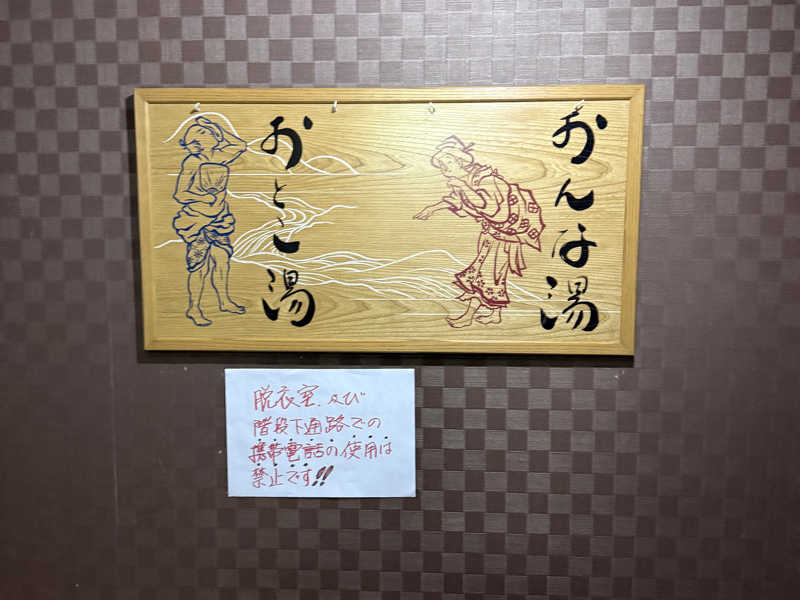 おとこ湯
おんな湯
脱衣室.及び
階段下通路での
携帯電話の使用は
禁止です!!